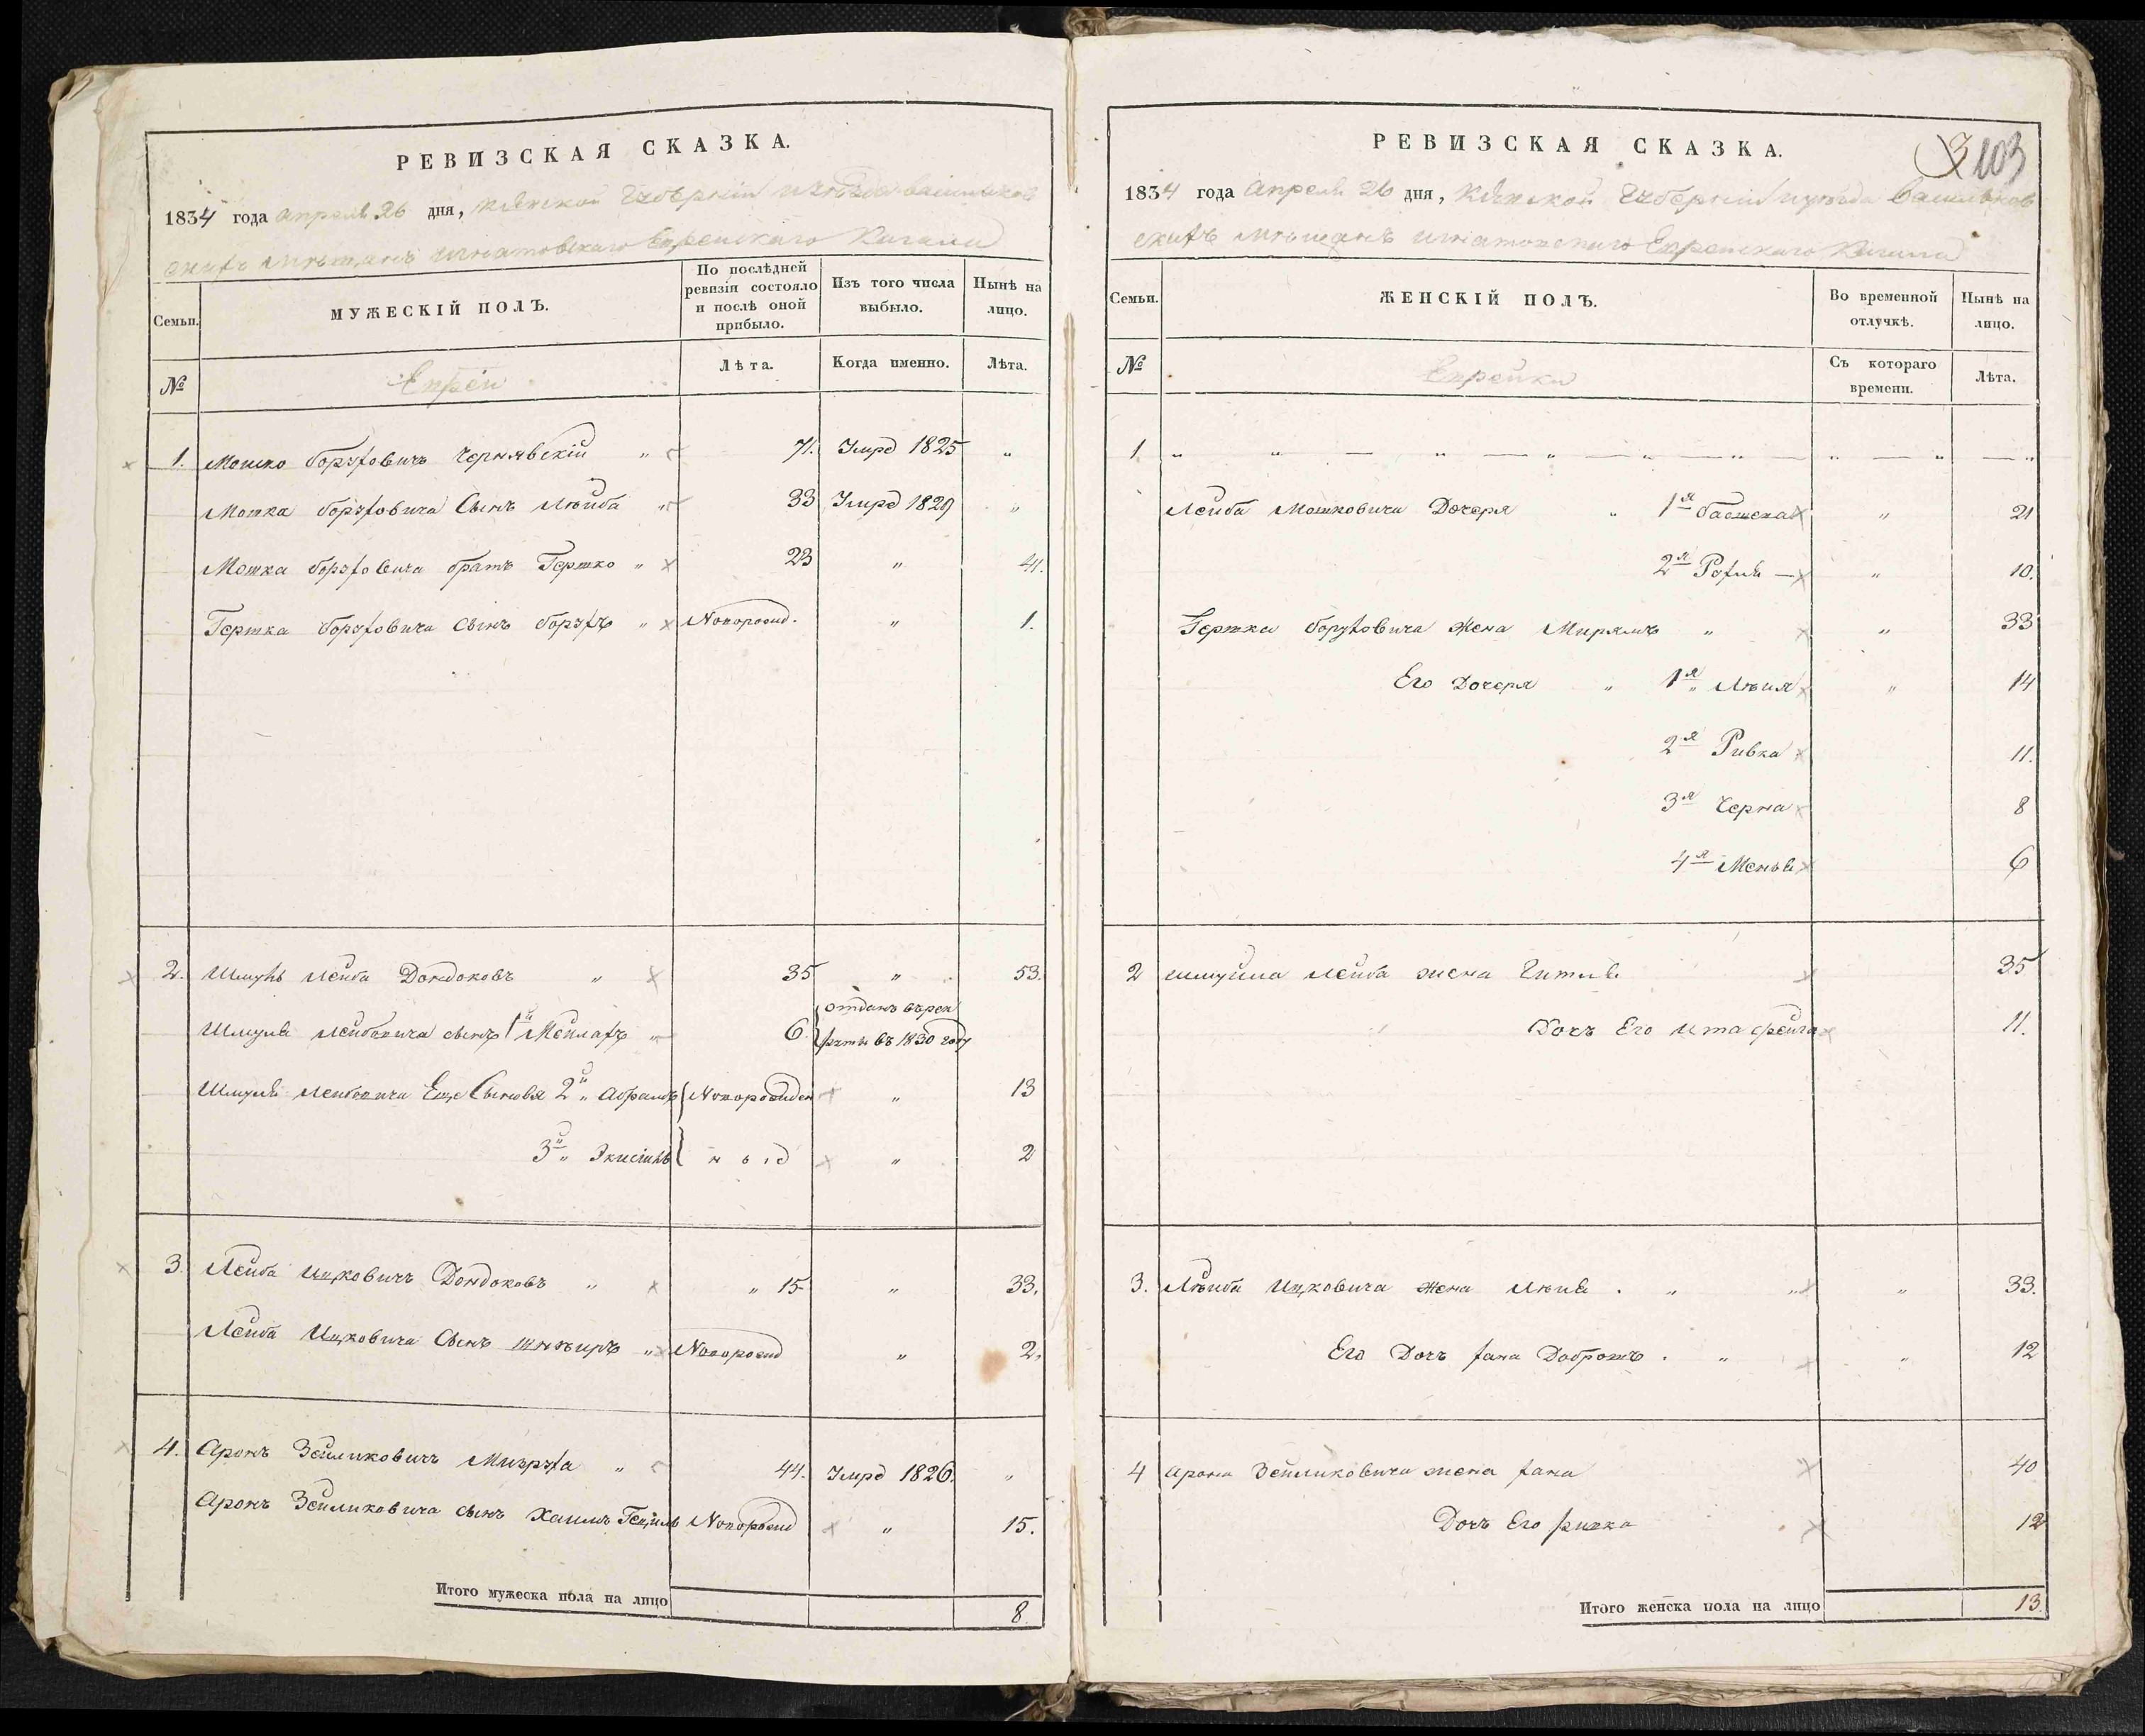 РЕВИЗСКАЯ СКАЗКА.
1834 года апреля 26 дня, Киевской Губернии и уезда Васильков
скихъ мещанъ Игнатовскаго Еврейскаго Кагала
Семьи.
МУЖЕСКІЙ ПОЛЪ.
По послѣдней ревизіи состояло и послѣ оной прибыло.
Изъ того числа выбыло.
Нынѣ на лицо.
№
Евреи
Лѣта.
Когда именно.
Лѣта.
1. Мошко Борухович Чернявскій " 71. Умре 1825 "
Мошка Боруховича Сынъ Лейба " 33 Умре 1829 "
Мошка Боруховича братъ Гершко " 23 " 41.
Гершка Боруховича Сынъ Борухъ " Новорожд. " 1.
2. Шмуль Лейба Дондоковъ " 35 " 53.
Шмуля Лейбовича сынъ 1й Мейлахъ " 6 отданъ върек
руты въ 1830 году
Шмуля Лейбовича Еще Сыновья 2й " Абрамъ Новорожден " 13
3й " ныд " 2
3 Лейба Ицковичъ Дондоковъ " " 15 " 33.
Лейба Ицковича Сынъ " Новорожд " 2.
4. Аронъ Зейликовичъ " 44. Умре 1826. "
Аронъ Зейликовича сынъ Хаимъ Новорожд " 15.
Итого мужеска пола на лицо 8
РЕВИЗСКАЯ СКАЗКА.
3 103
1834 года Апреля 26 дня, Киевской Губерніи и уезда Васильков
скихъ мещанъ Игнатовскаго Еврейскаго Кагала
Семьи.
ЖЕНСКІЙ ПОЛЪ.
Во временной отлучкѣ.
Нынѣ на лицо.
№
Еврейки
Съ котораго времени.
Лѣта.
1 " " — " — " — " — " — " — " — "
Лейба Мошковича Дочеря " 1я " 21
2я Рохля — " 10.
Гершка Боруховича Жена Мирямъ " " 33
Его Дочеря " 1я " Лѣия " 14
2я Ривка 11.
3я Черна 8
4я Меньа 6
2 Шмуйла Лейба жена Гитля 35
Дочъ Его Ита фейга 11.
3. Лѣйба Ицковича жена . " " " 33.
Его Дочъ хана . " " 12
4 Арона Зейликовича жена хана 40
Дочъ Его ривка 12
Итого женска пола на лицо 13.